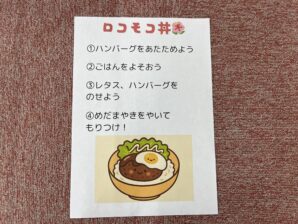 ロコモコ丼
①ハンバーグをあたためよう
②ごはんをよそおう
③レタス、ハンバーグを
のせよう
④めだまやきをやいて
もりつけ！